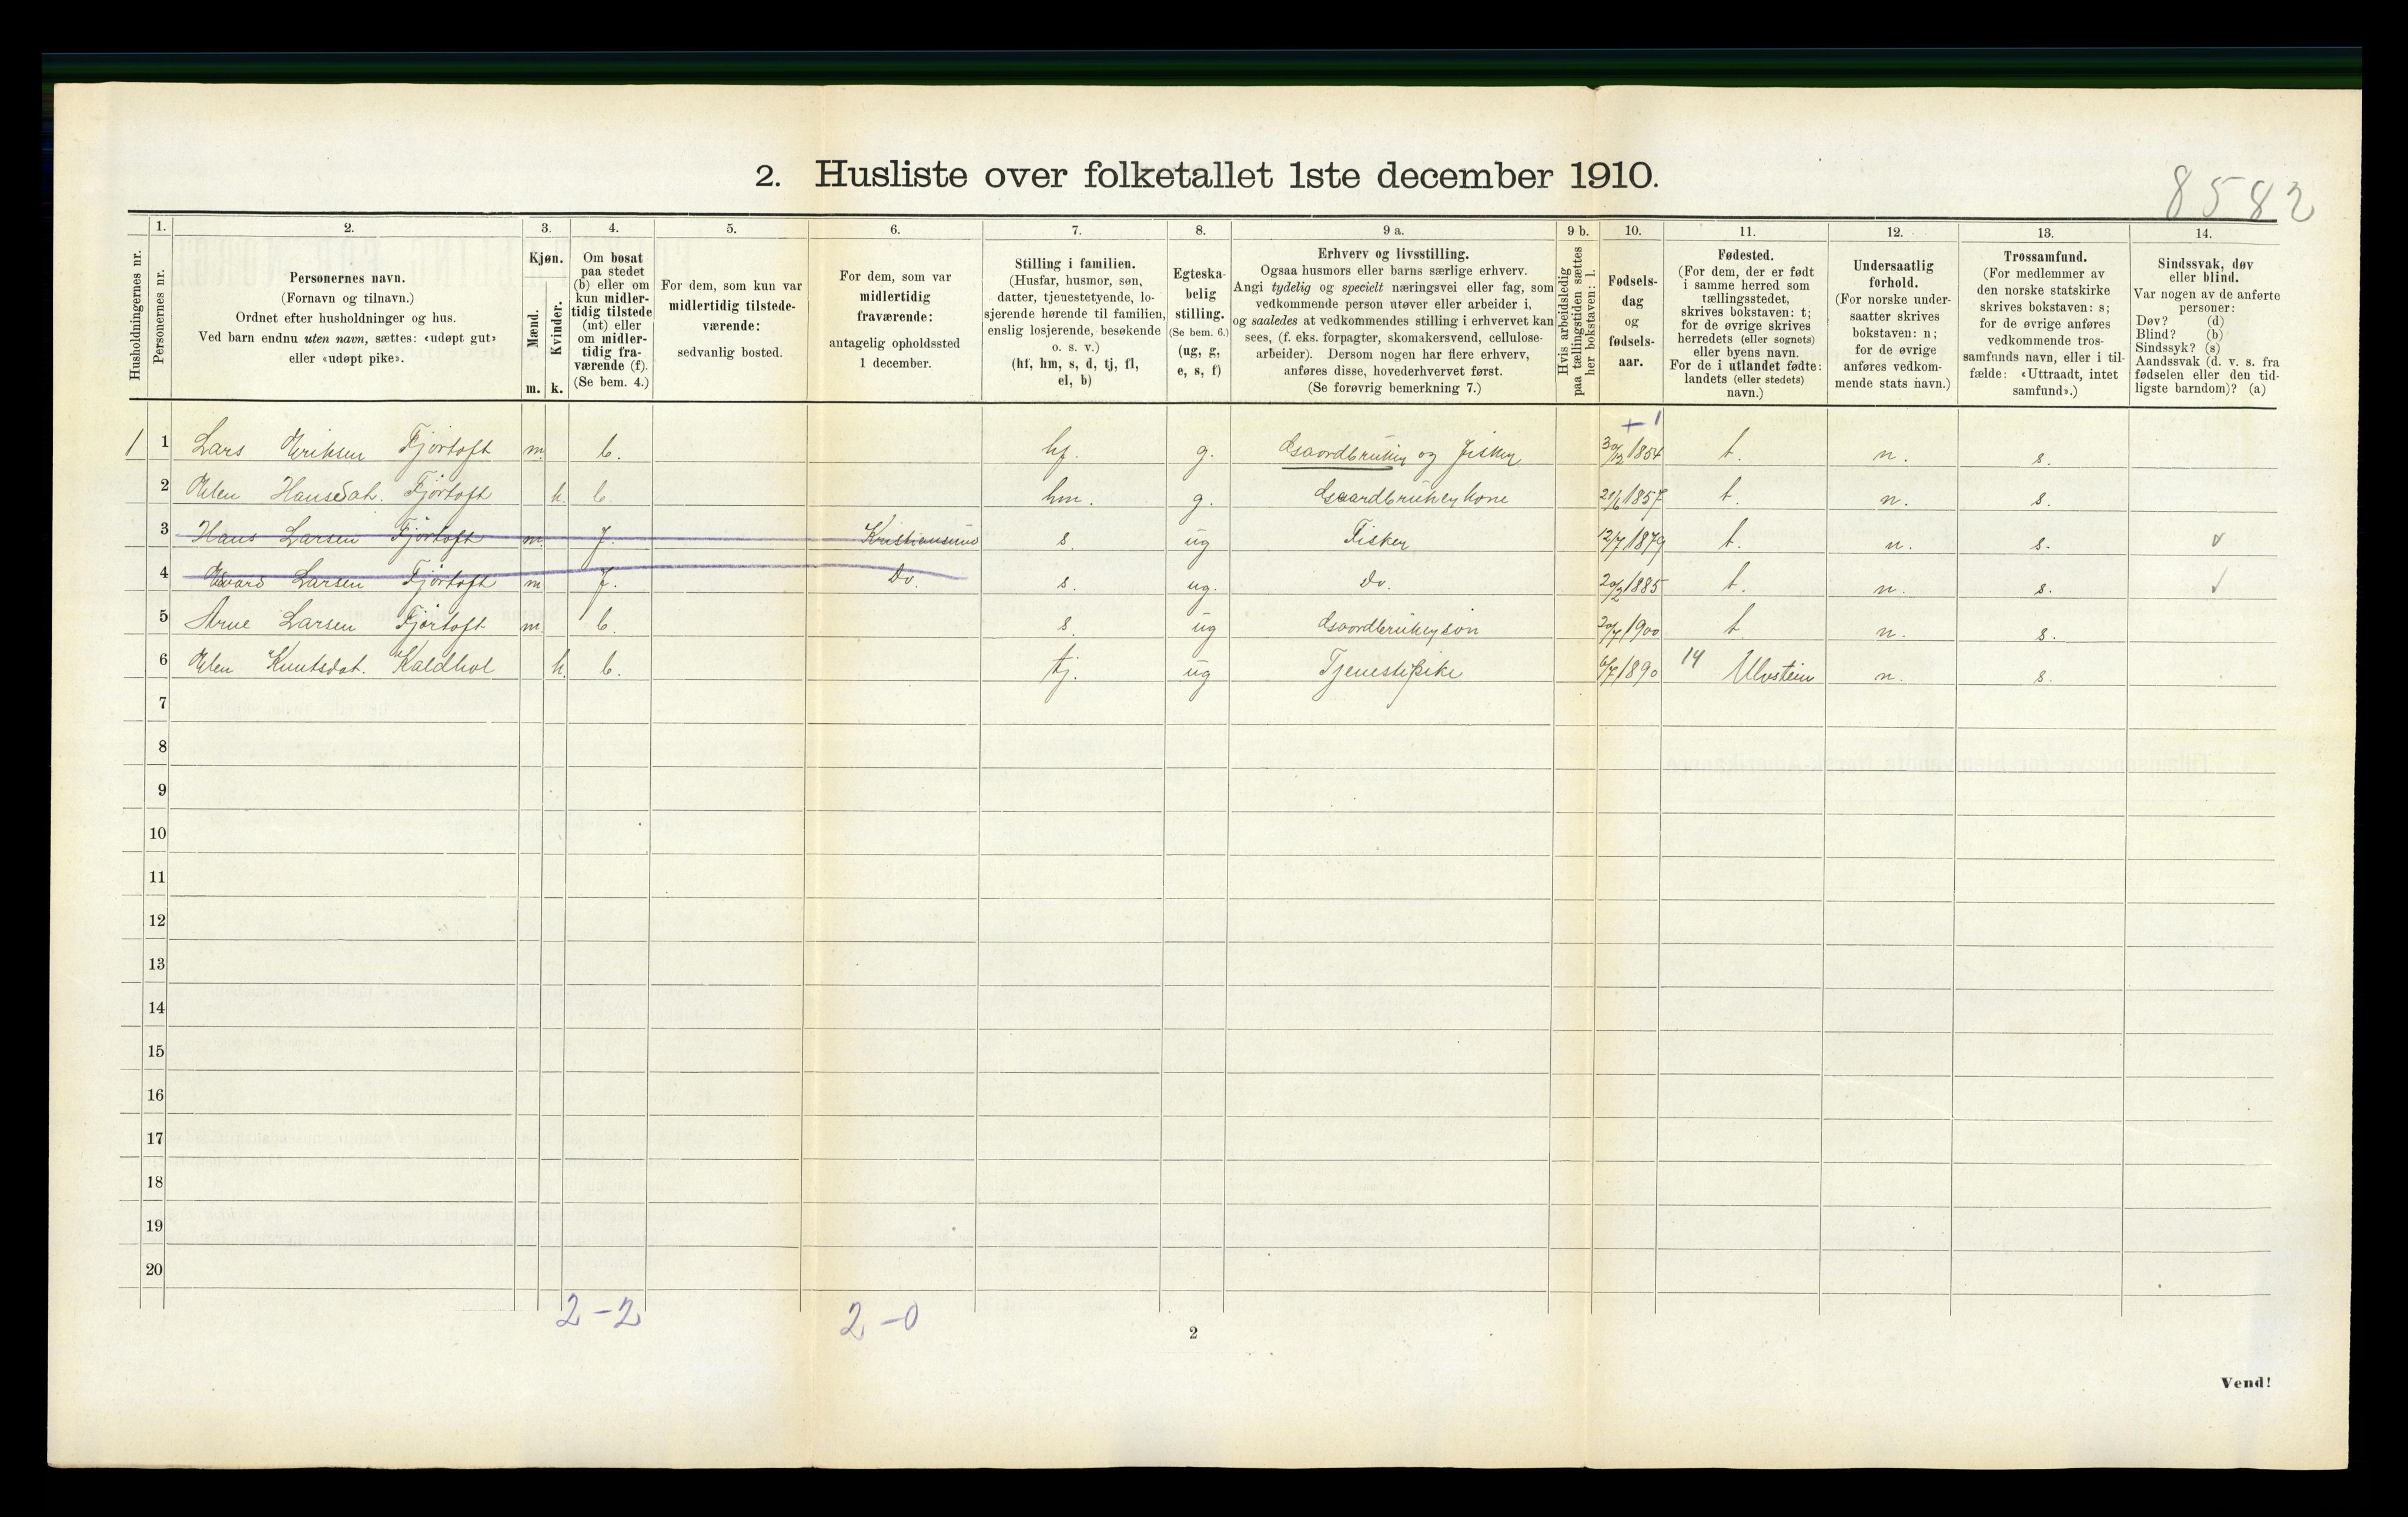 2. Husliste over folketallet 1ste december 1910.
8582
Husholdningernes nr.
1.
Personernes nr.
2.
Personernes navn.
(Fornavn og tilnavn.)
Ordnet efter husholdninger og hus.
Ved barn endnu uten navn, sættes: «udøpt gut»
eller «udøpt pike».
3.
Kjøn.
Mænd.
Kvinder.
m. k.
4.
Om bosat
paa stedet
(b) eller om
kun midler-
tidig tilstede
(mt) eller
om midler-
tidig fra-
værende (f).
(Se bem. 4.)
5.
For dem, som kun var
midlertidig tilstede-
værende:
sedvanlig bosted.
6.
For dem, som var
midlertidig
fraværende:
antagelig opholdssted
1 december.
7.
Stilling i familien.
(Husfar, husmor, søn,
datter, tjenestetyende, lo-
sjerende hørende til familien,
enslig losjerende, besøkende
o. s. v.)
(hf, hm, s, d, tj, fl,
el, b)
8.
Egteska-
belig
stilling.
(Se bem. 6.)
(ug, g,
e, s, f)
9 a.
Erhverv og livsstilling.
Ogsaa husmors eller barns særlige erhverv.
Angi tydelig og specielt næringsvei eller fag, som
vedkommende person utøver eller arbeider i,
og saaledes at vedkommendes stilling i erhvervet kan
sees, (f. eks. forpagter, skomakersvend, cellulose-
arbeider). Dersom nogen har flere erhverv,
anføres disse, hovederhvervet først.
(Se forøvrig bemerkning 7.)
9 b.
Hvis arbeidsledig
paa tællingstiden sættes
her bokstaven: l.
10.
Fødsels-
dag
og
fødsels-
aar.
11.
Fødested.
(For dem, der er født
i samme herred som
tællingsstedet,
skrives bokstaven: t;
for de øvrige skrives
herredets (eller sognets)
eller byens navn.
For de i utlandet fødte:
landets (eller stedets)
navn.)
12.
Undersaatlig
forhold.
(For norske under-
saatter skrives
bokstaven: n;
for de øvrige
anføres vedkom-
mende stats navn.)
13.
Trossamfund.
(For medlemmer av
den norske statskirke
skrives bokstaven: s;
for de øvrige anføres
vedkommende tros-
samfunds navn, eller i til-
fælde: «Uttraadt, intet
samfund».)
14.
Sindssvak, døv
eller blind.
Var nogen av de anførte
personer:
Døv? (d)
Blind? (b)
Sindssyk? (s)
Aandssvak (d. v. s. fra
fødselen eller den tid-
ligste barndom)? (a)
+ 1
1 1 Lars Eriksen Fjørtoft m. b. hf. g. Gaardbruker og Fisker 30/12 1854 t. n. s.
2 Elen Hansdat. Fjørtoft k. b. hm. g. Gaardbruker kone 21/6 1857 t. n. s.
3 Hans Larsen Fjørtoft m. f. Kristiansund s. ug Fisker 12/7 1879 t. n. s. v
4 Edvard Larsen Fjørtoft m f. Do. s. ug. Do. 1885 t. n. s. v
5 Arne Larsen Fjørtoft m. b. s. ug Gaardbruker søn 20/7 1900 t n. s.
6 Elen Knutsdat. Kaldhol k. b. tj. ug Tjenestepike 6/7 1890 14 Ulvstein n. s.
7
8
9
10
11
12
13
14
15
16
17
18
19
20
2-2 2-0
2
Vend!